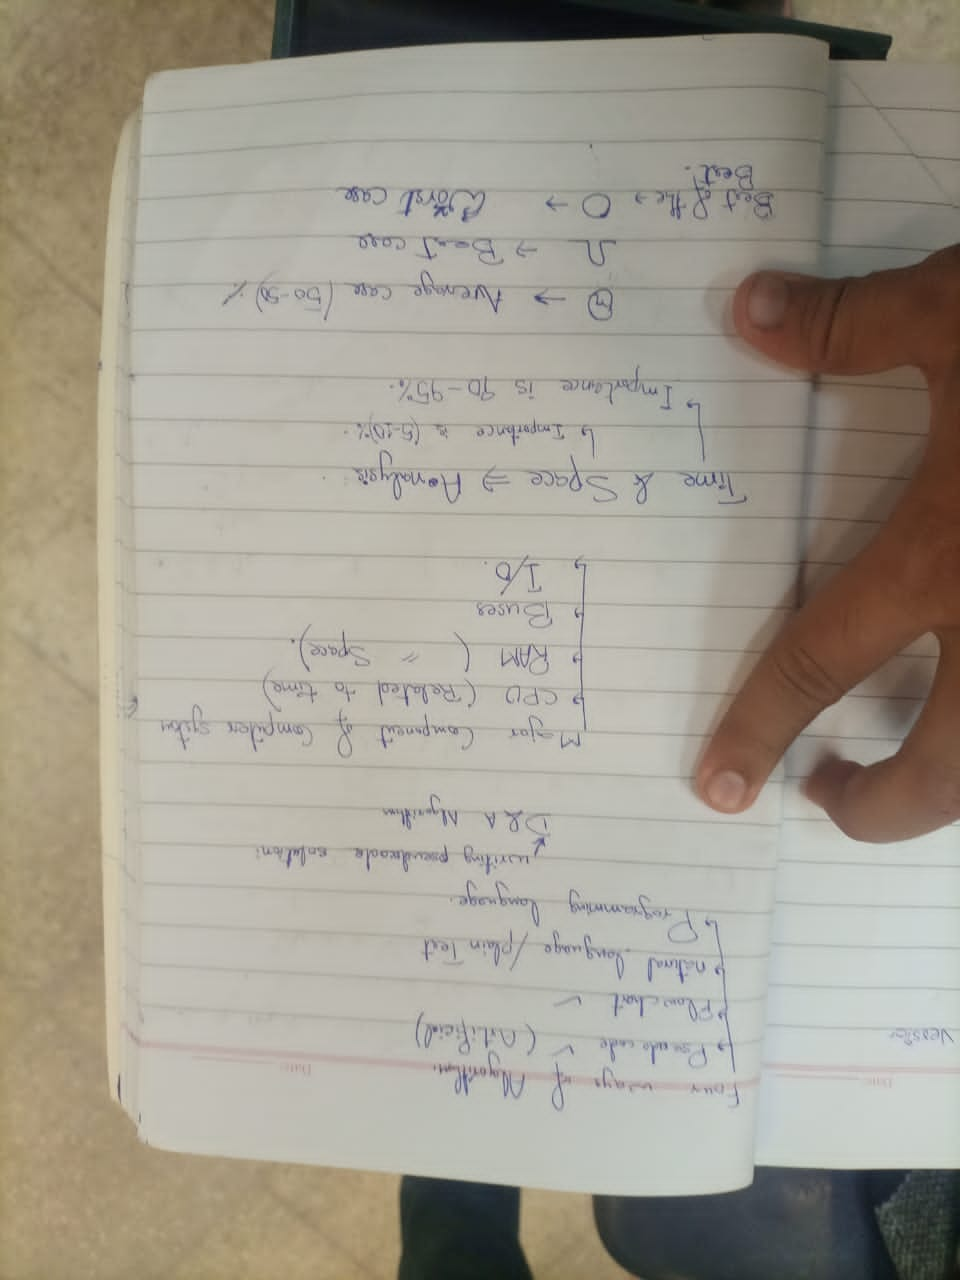 Four ways of Algorithm.
↳ Pseudo code ✓ (Artificial)
↳ Flowchart ✓
↳ natural language / plain Text
↳ Programming language.
writing pseudocode solution:
D&A Algorithm
Major Component of Computer system
↳ CPU (Related to time)
↳ RAM ( " Space).
↳ Buses
↳ I/O.
Time & Space ⇒ Analysis.
↳ Importance is (5-10)%.
↳ Importance is 90-95%.
Θ → Average case (50-50)%
Ω → Best case
Best of the → O → Worst case
Best.
Date:
Date: